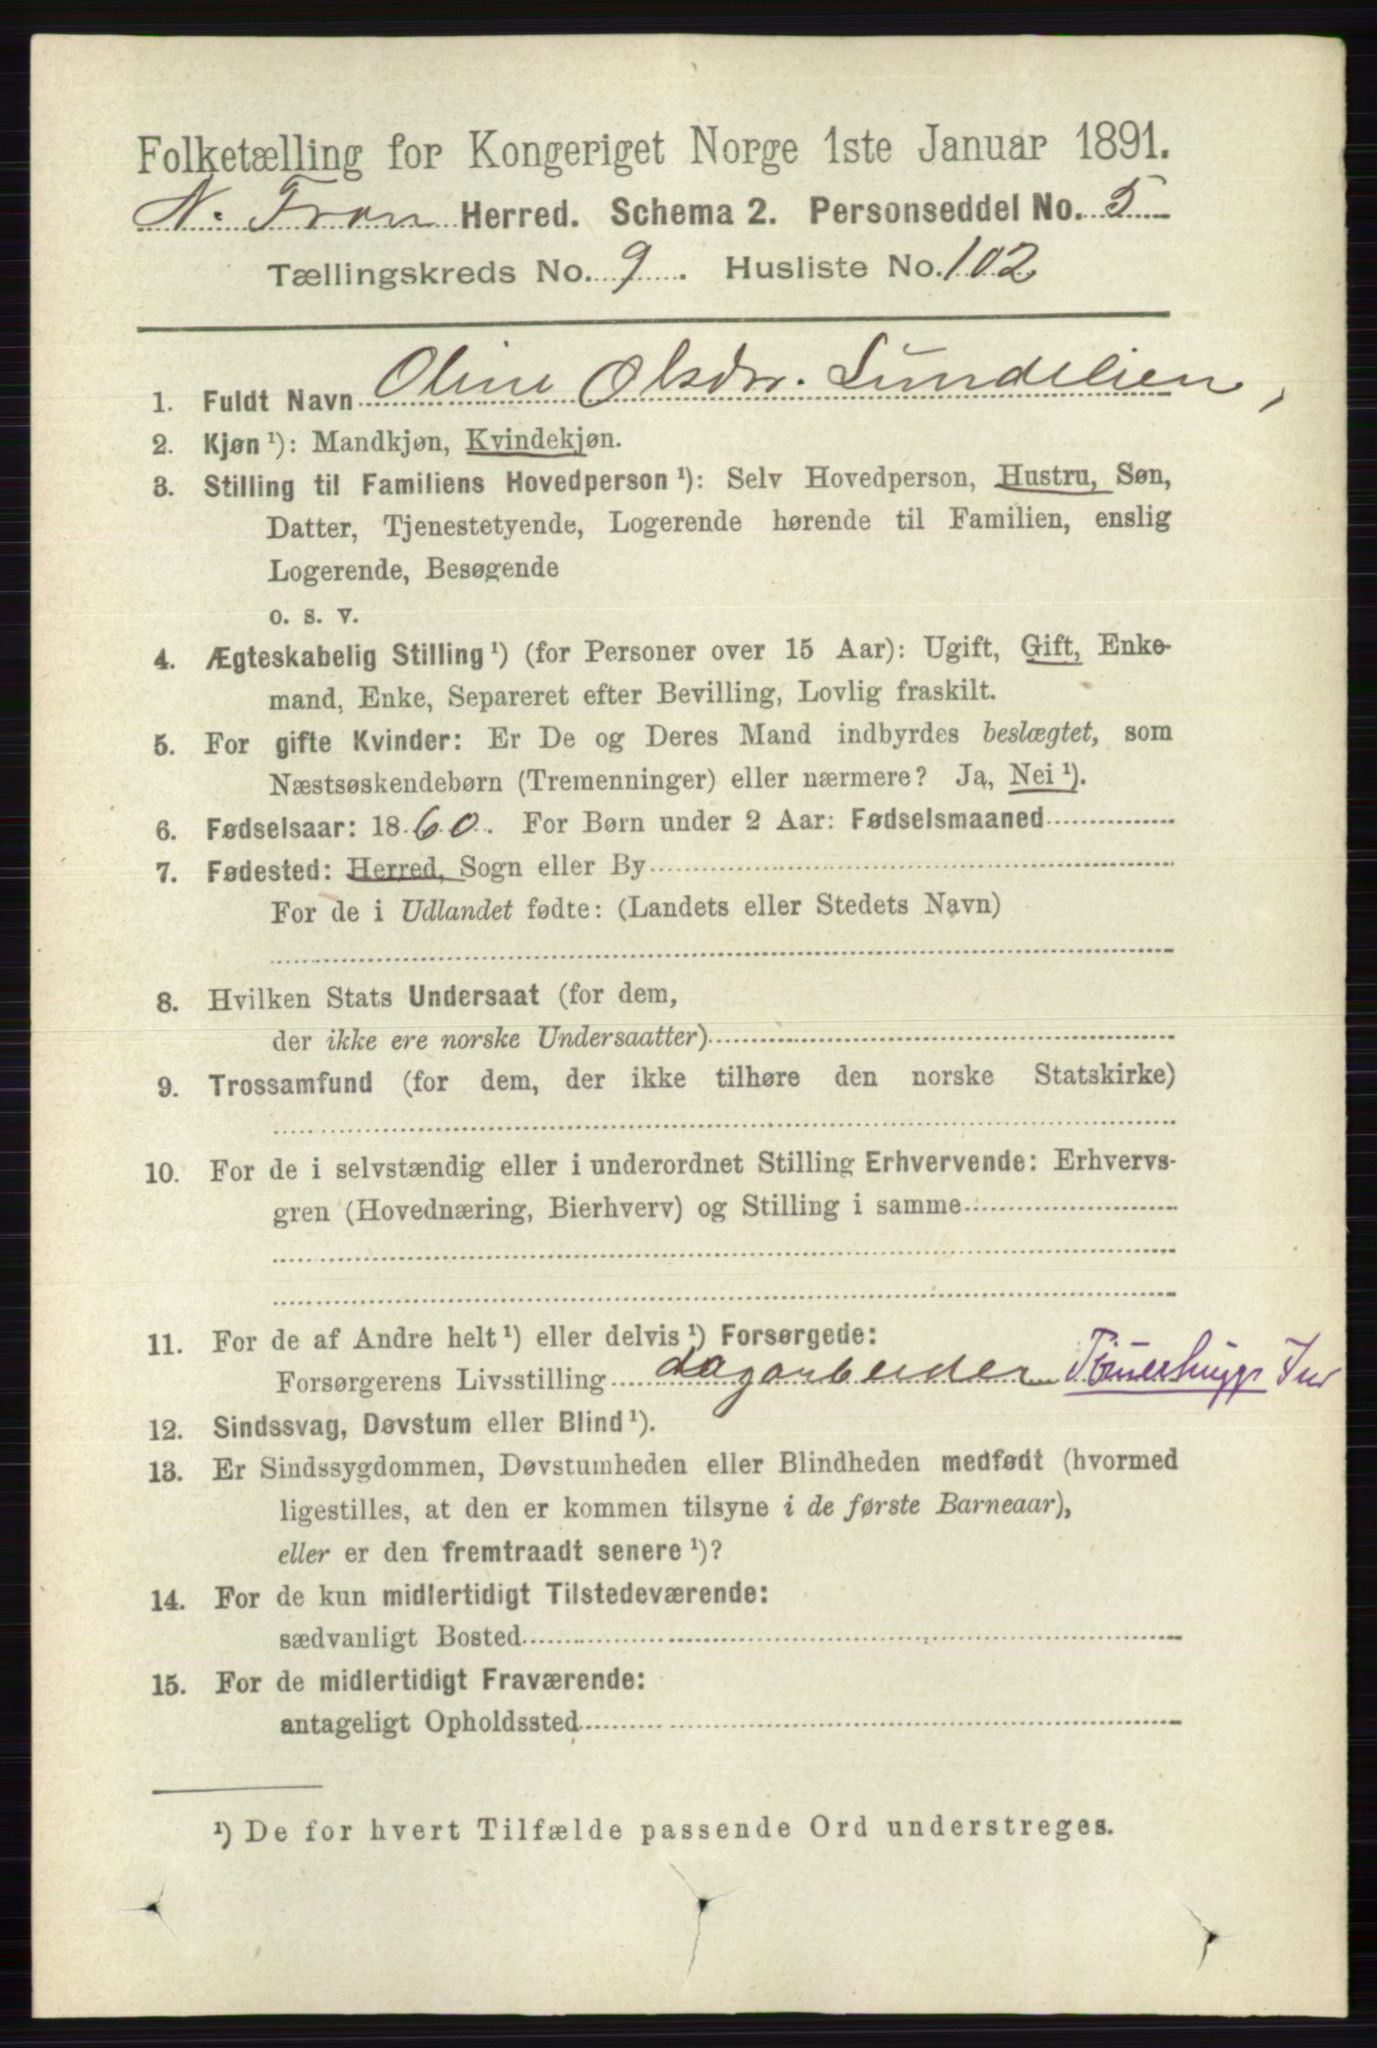 Folketælling for Kongeriget Norge 1ste Januar 1891.
N. Fron Herred. Schema 2. Personseddel No. 5
Tællingskreds No. 9. Husliste No. 102
1. Fuldt Navn Oline Olsdr. Lundelien,
2. Kjøn ¹): Mandkjøn, Kvindekjøn.
3. Stilling til Familiens Hovedperson ¹): Selv Hovedperson, Hustru, Søn,
Datter, Tjenestetyende, Logerende hørende til Familien, enslig
Logerende, Besøgende
o. s. v.
4. Ægteskabelig Stilling ¹) (for Personer over 15 Aar): Ugift, Gift, Enke-
mand, Enke, Separeret efter Bevilling, Lovlig fraskilt.
5. For gifte Kvinder: Er De og Deres Mand indbyrdes beslægtet, som
Næstsøskendebørn (Tremenninger) eller nærmere? Ja, Nei ¹).
6. Fødselsaar: 1860. For Børn under 2 Aar: Fødselsmaaned
7. Fødested: Herred, Sogn eller By
For de i Udlandet fødte: (Landets eller Stedets Navn)
8. Hvilken Stats Undersaat (for dem,
der ikke ere norske Undersaatter)
9. Trossamfund (for dem, der ikke tilhøre den norske Statskirke)
10. For de i selvstændig eller i underordnet Stilling Erhvervende: Erhvervs-
gren (Hovednæring, Bierhverv) og Stilling i samme
11. For de af Andre helt ¹) eller delvis ¹) Forsørgede:
Forsørgerens Livsstilling dagarbeider
12. Sindssvag, Døvstum eller Blind ¹).
13. Er Sindssygdommen, Døvstumheden eller Blindheden medfødt (hvormed
ligestilles, at den er kommen tilsyne i de første Barneaar),
eller er den fremtraadt senere ¹)?
14. For de kun midlertidigt Tilstedeværende:
sædvanligt Bosted
15. For de midlertidigt Fraværende:
antageligt Opholdssted
¹) De for hvert Tilfælde passende Ord understreges.